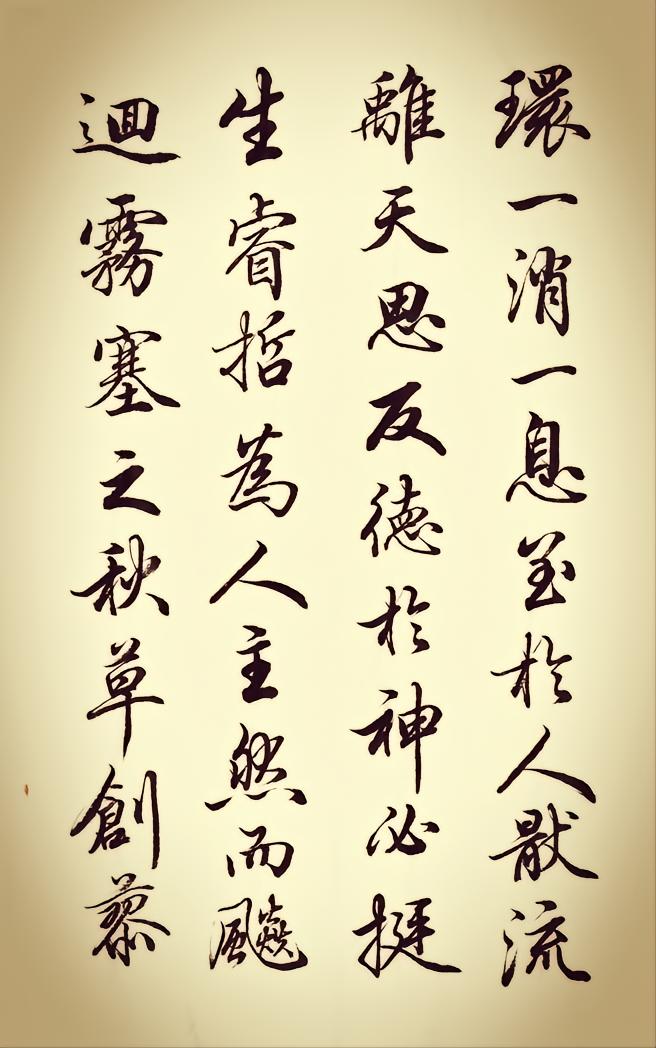 環一消一息至於人猒流
離天思反德於神必挺
生睿哲為人主然而飈
迴霧塞之秋草創